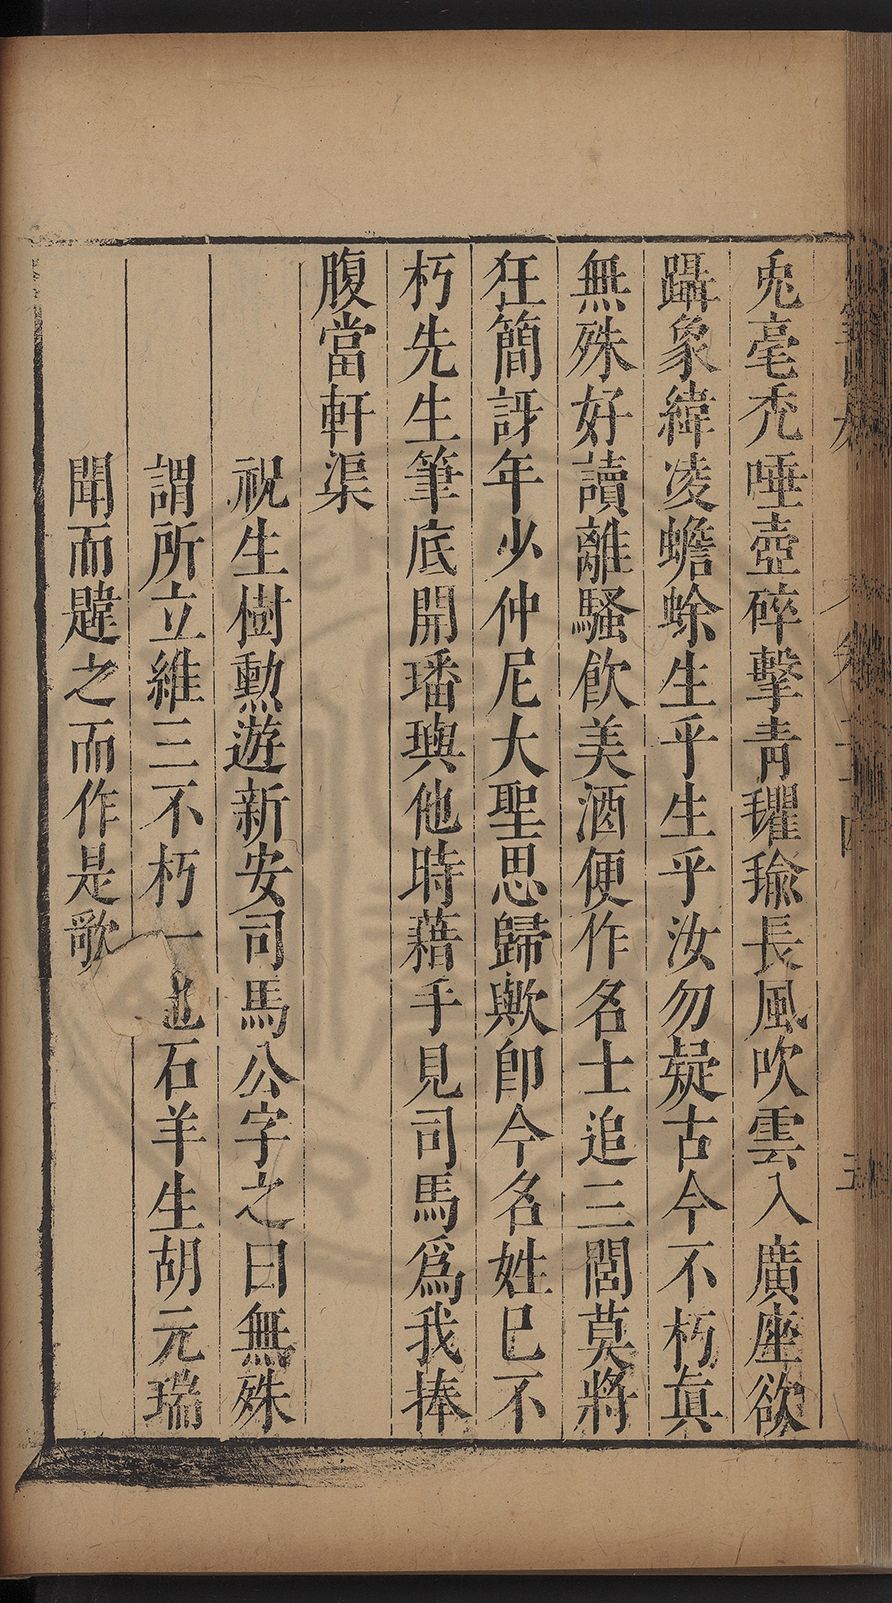 兎毫禿唾壺碎擊青瓓瑜長風吹雲入廣座欲
躡象緯凌蟾蜍生乎生乎汝勿疑古今不朽真
無殊好讀離騷飲美酒便作名士追三閭莫將
狂簡訝年少仲尼大聖思歸歟卽今名姓已不
朽先生筆底開璠璵他時藉手見司馬爲我捧
腹當軒渠
祝生樹勲遊新安司馬公字之曰無殊
謂所立維三不朽一也石羊生胡元瑞
聞而韙之而作是歌